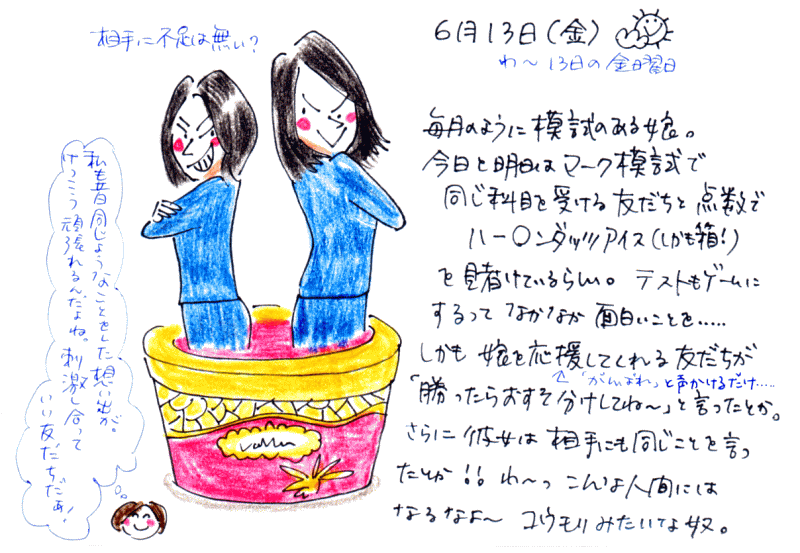 相手に不足は無い？
6月13日（金）
わ〜13日の金曜日
毎月のように模試のある娘。
今日と明日はマーク模試で
同じ科目を受ける友だちと点数で
ハー〇ンダッツアイス（しかも箱！）
を賭けているらしい。テストもゲームに
するって なかなか 面白いことを……
しかも 娘を応援してくれる友だちが
↑「がんばれ」と声かけるだけ……
「勝ったらおすそ分けしてね〜」と言ったとか。
さらに彼女は 相手にも同じことを言っ
たとか!! わ〜っ こんな人間には
なるなよ〜 コウモリみたいな奴。
私も昔同じようなことをした想い出が。
けっこう頑張れるんだよね。刺激し合って
いい友だちだぁ！